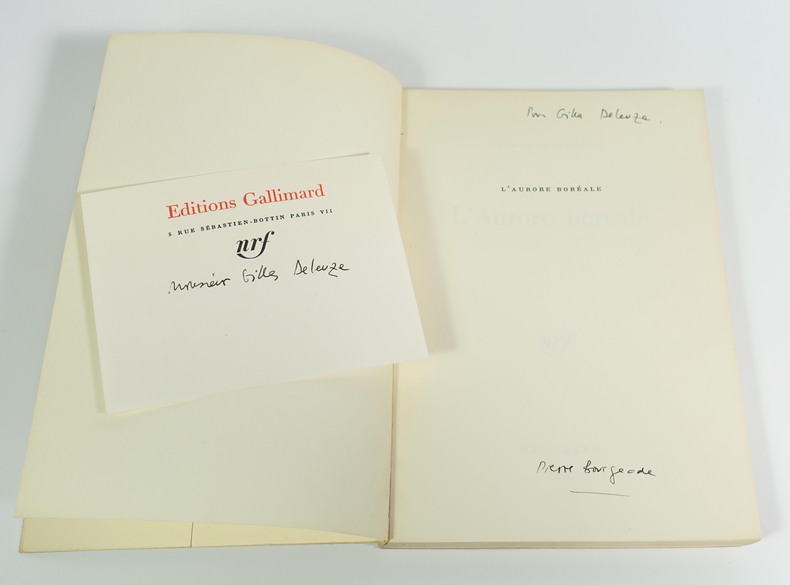 Editions Gallimard
5 RUE SÉBASTIEN-BOTTIN PARIS VII
nrf
Monsieur Gilles Deleuze
Pour Gilles Deleuze.
L'AURORE BORÉALE
L'Aurore boréale
nrf
Pierre Bourgeade